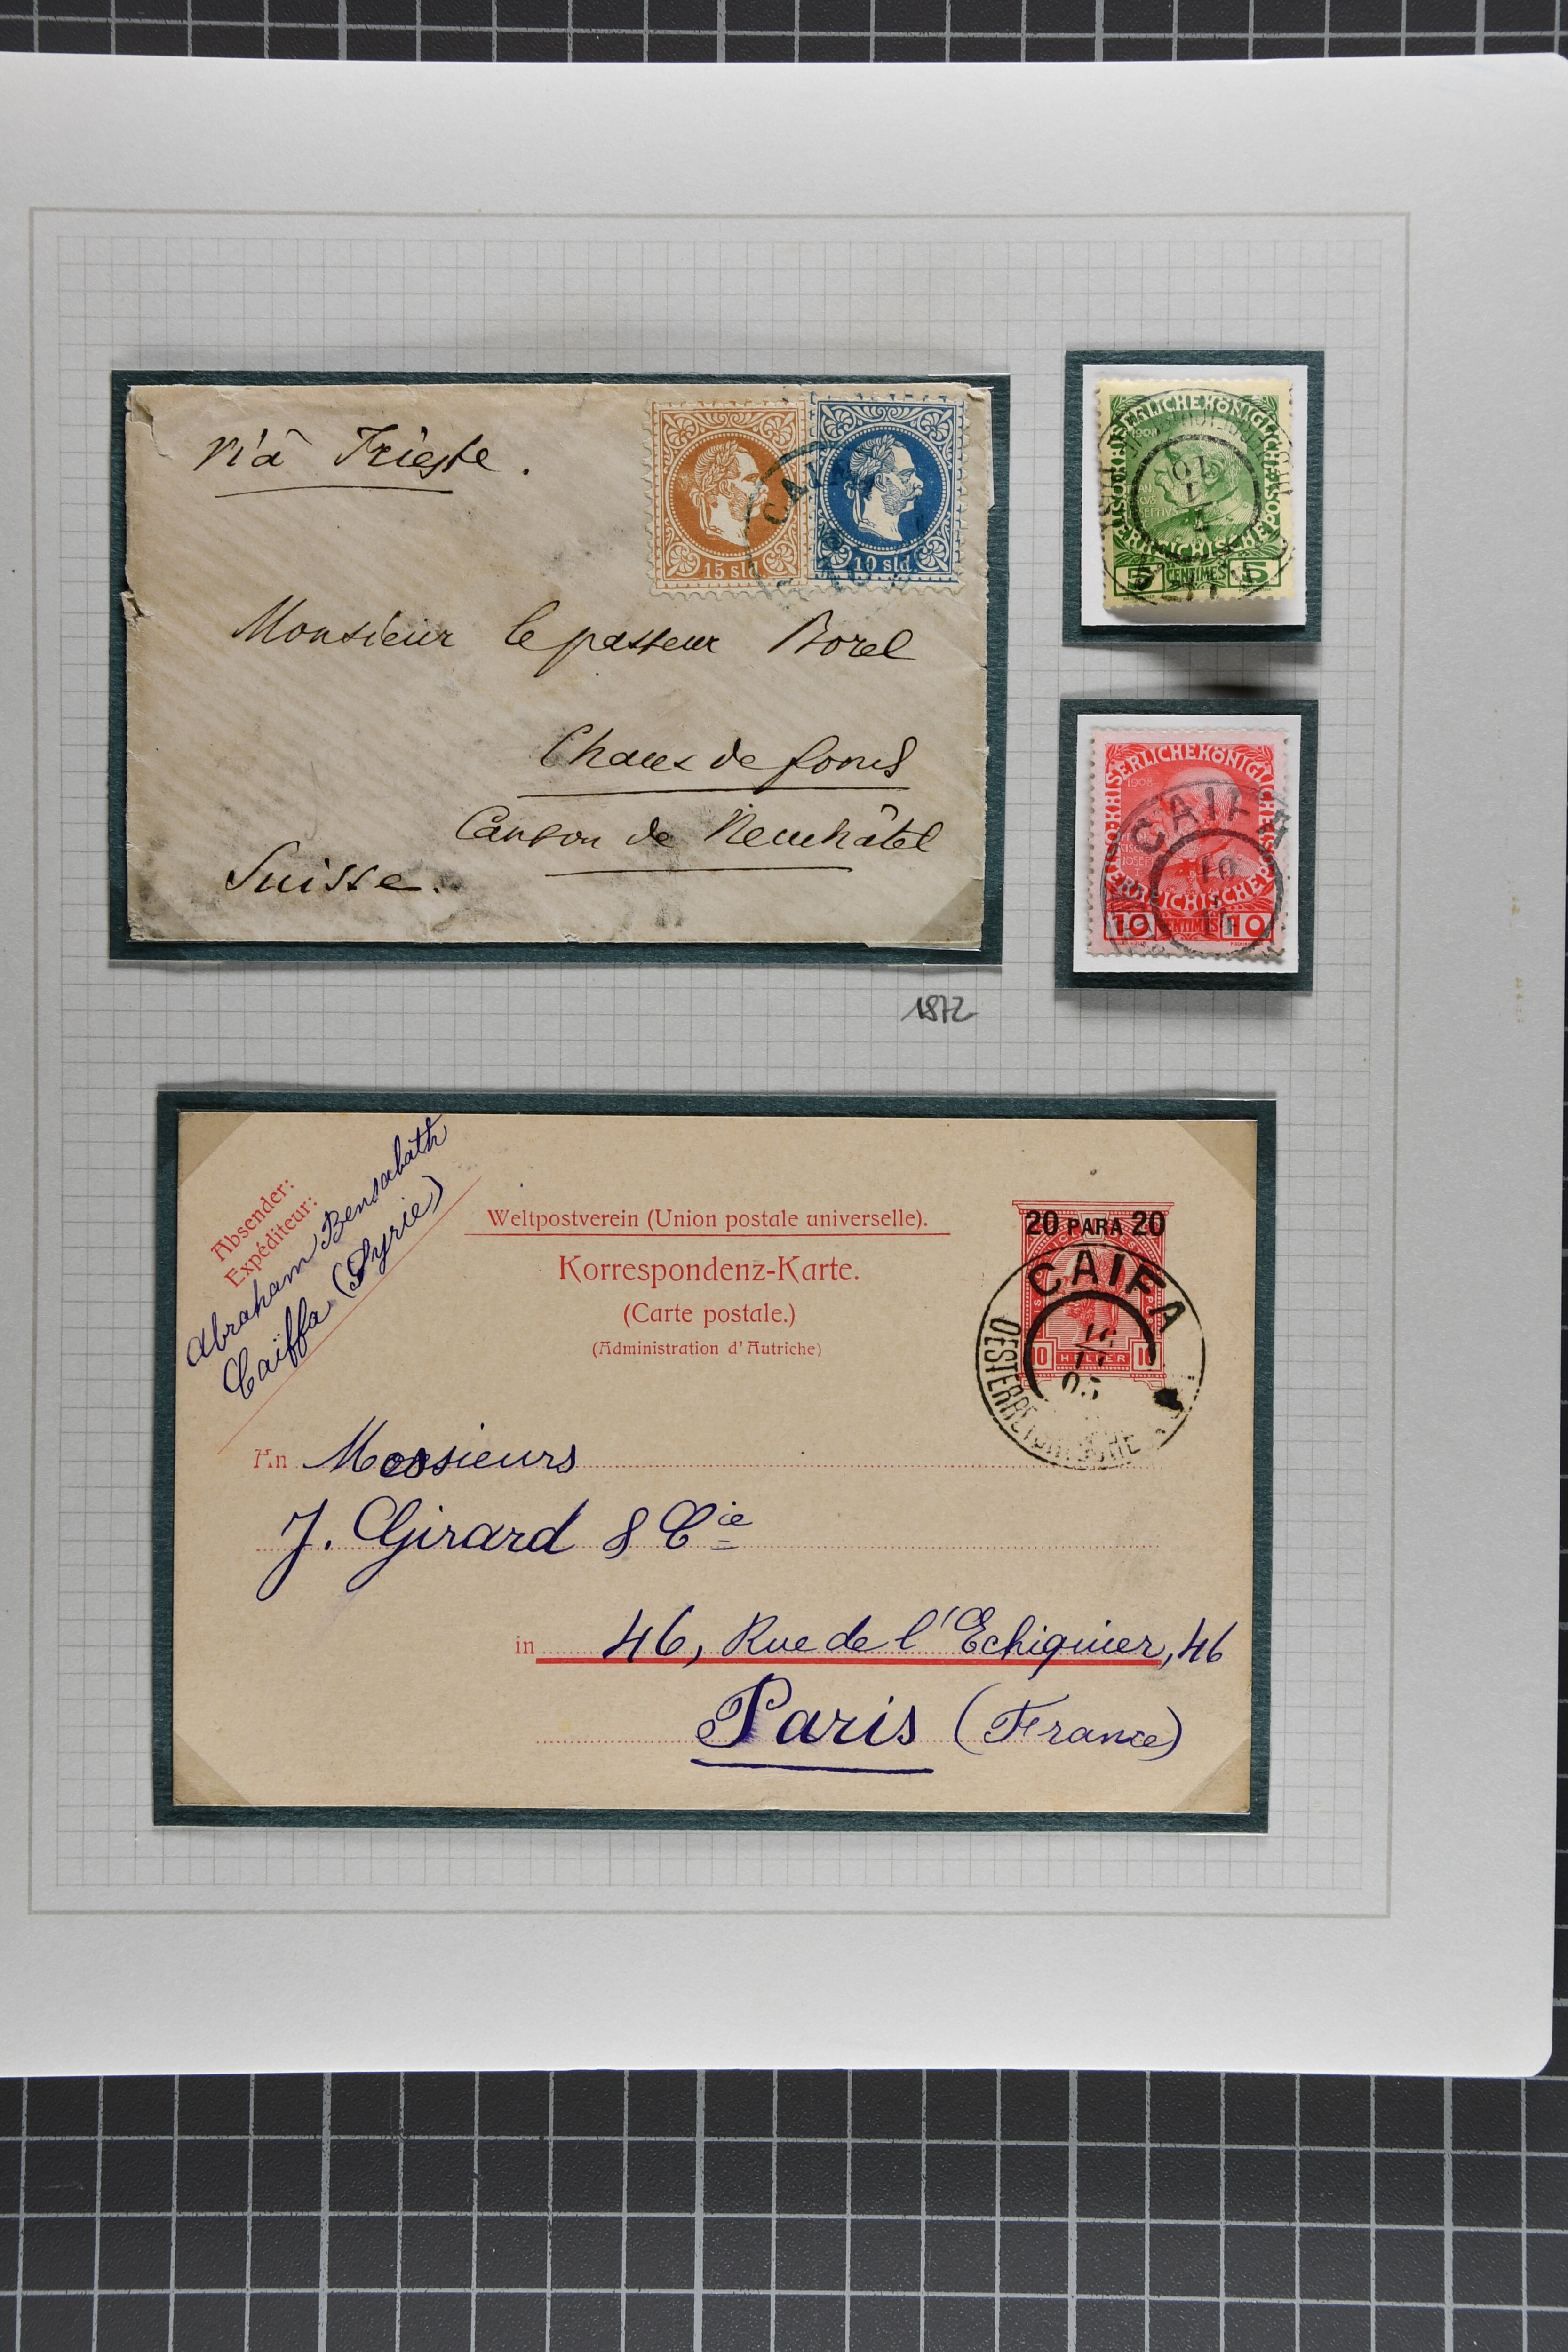 viâ Trieste.
15 sld.
10 sld.
CAIFA
Monsieur le pasteur Borel
Chaux de fonds
Canton de Neuchâtel
Suisse.
1872
KAISERLICHE KÖNIGLICHE
ÖSTERREICHISCHE POST
1908
5 CENTIMES 5
KAISERLICHE KÖNIGLICHE
ÖSTERREICHISCHE POST
1908
CAIFA
10 CENTIMES 10
Absender:
Expéditeur:
Abraham Bensabath
Caïffa (Syrie)
Weltpostverein (Union postale universelle).
Korrespondenz-Karte.
(Carte postale.)
(Administration d'Autriche)
20 PARA 20
CAIFA
05
OESTERREICHISCHE
10 HELLER 10
An Messieurs
J. Girard & Cie
in 46, Rue de l'Echiquier, 46
Paris (France)